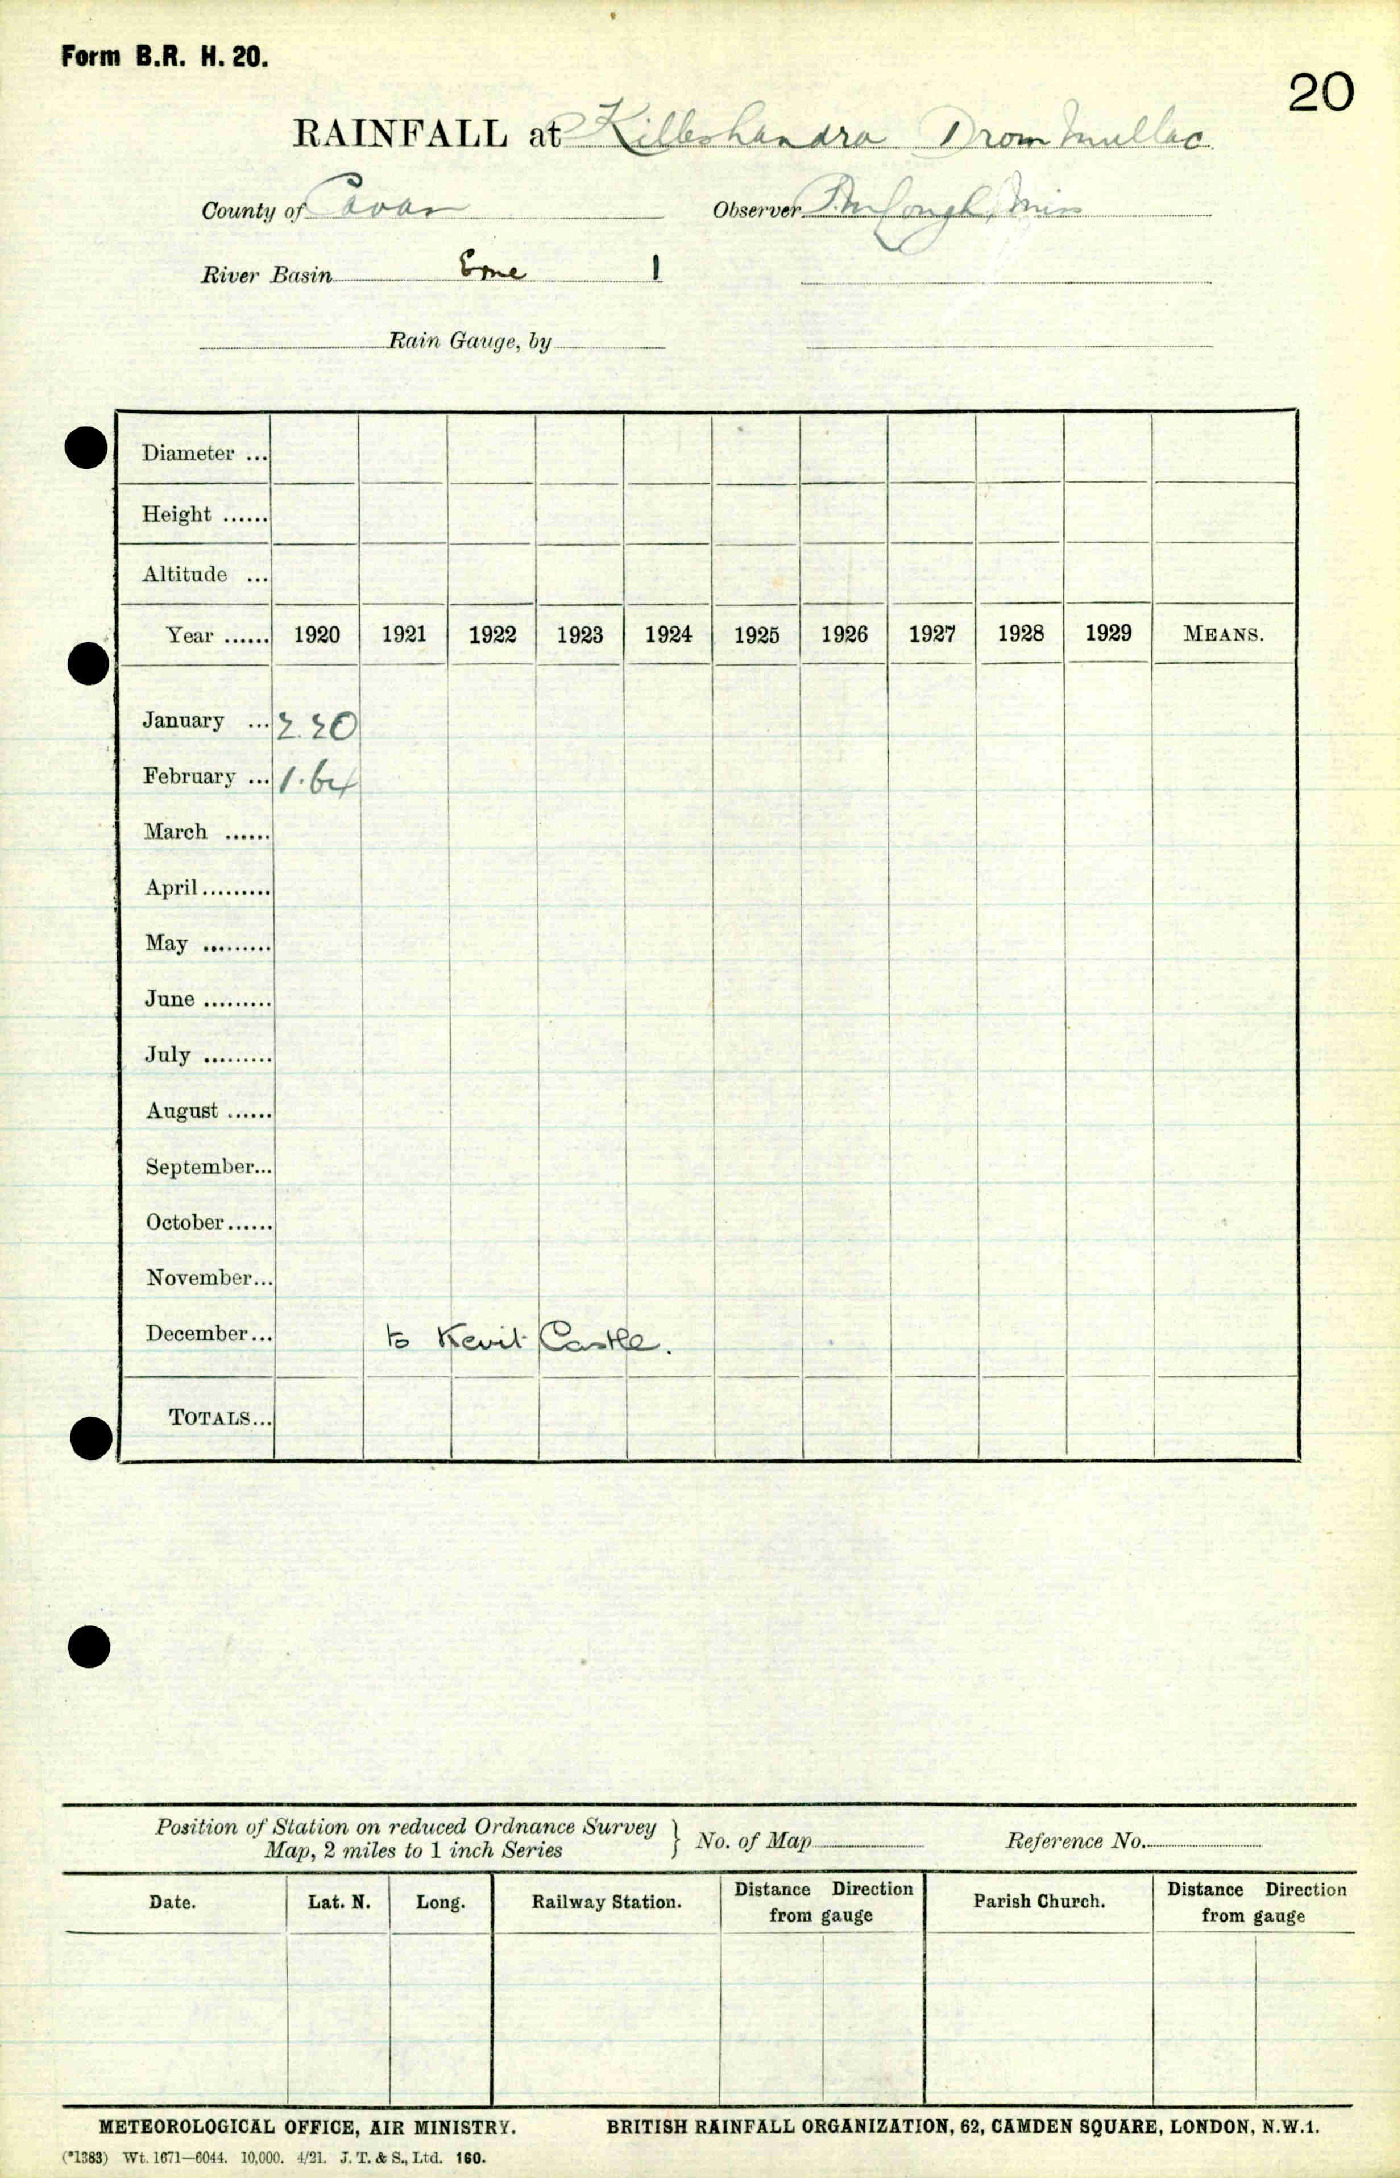 Form B.R. H. 20.
20
RAINFALL at Killeshandra Drom Mullac
County of Cavan Observer
River Basin Erne 1
Rain Gauge, by
Diameter ...
Height ......
Altitude ...
Year ...... 1920 1921 1922 1923 1924 1925 1926 1927 1928 1929 MEANS.
January ... 2.20
February ... 1.64
March ......
April.........
May .........
June .........
July .........
August ......
September...
October......
November...
December... to Kevit Castle.
TOTALS...
Position of Station on reduced Ordnance Survey
Map, 2 miles to 1 inch Series } No. of Map Reference No.
Date. Lat. N. Long. Railway Station. Distance Direction from gauge Parish Church. Distance Direction from gauge
METEOROLOGICAL OFFICE, AIR MINISTRY. BRITISH RAINFALL ORGANIZATION, 62, CAMDEN SQUARE, LONDON, N.W.1.
(*1383) Wt. 1671—6044. 10,000. 4/21. J. T. & S., Ltd. 160.